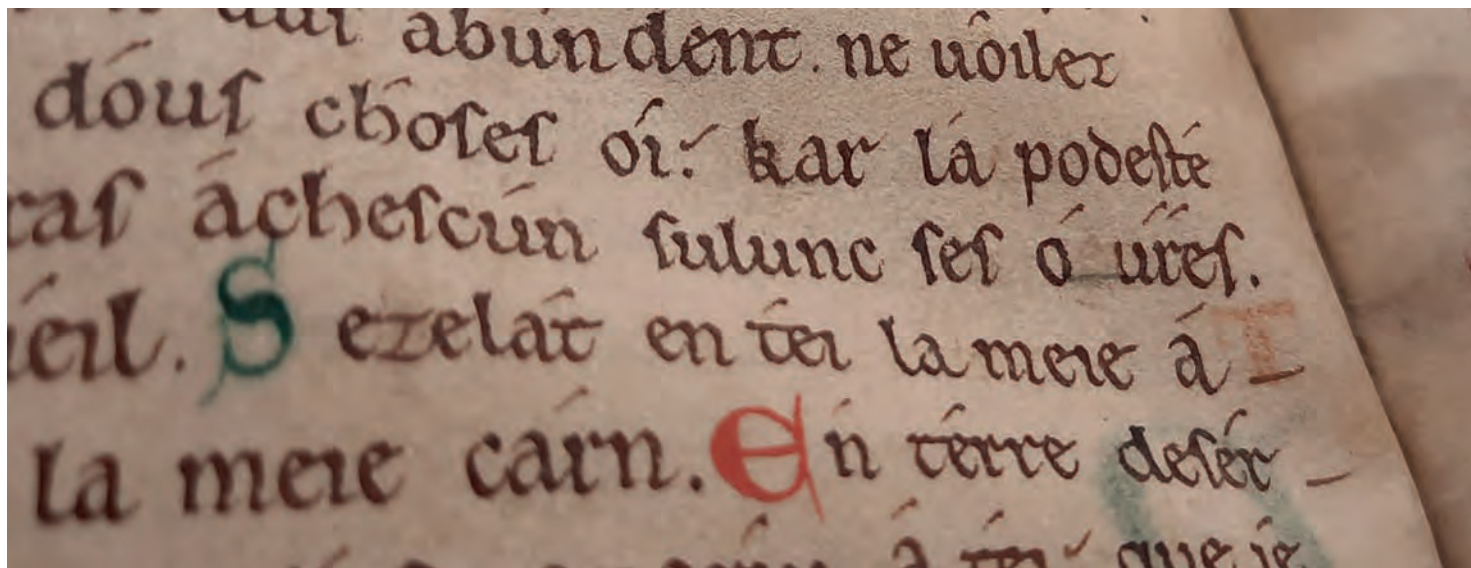 abundent. ne uoilez
dóus choses óí: kar lá podesté
ras áchescún sulunc ses ó ures.
éil. Sezelat en téi la meie á-
la meie cárn. En térre desér-
á téi que ie